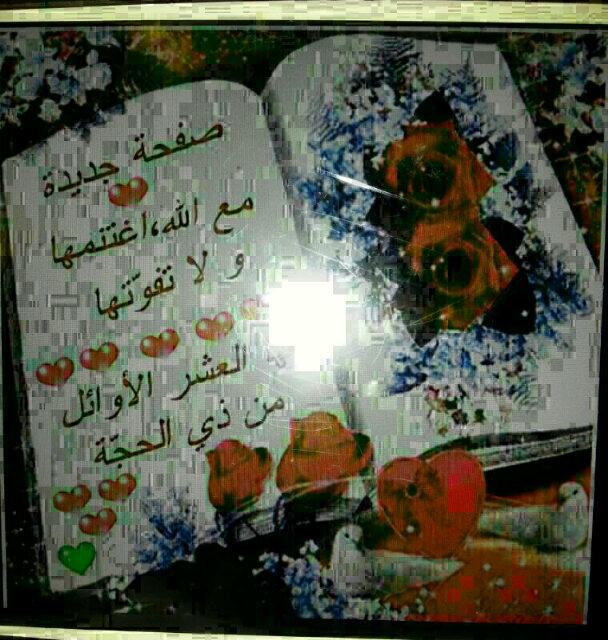 صفحة جديدة
مع الله،اغتنمها
و لا تفوّتها
العشر الأوائل
من ذي الحجّة